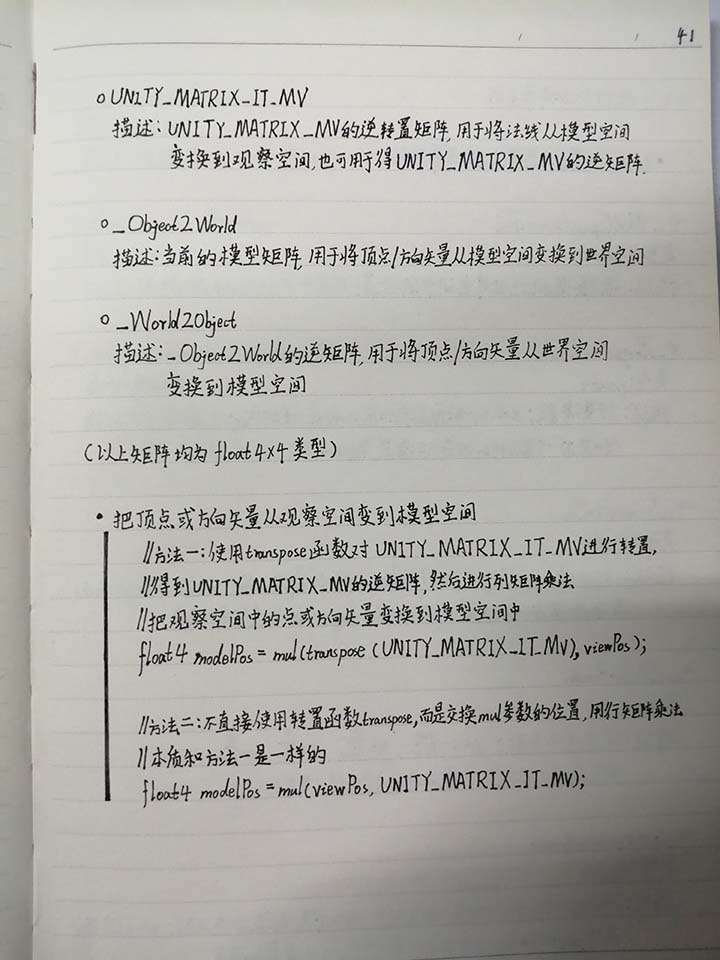 41
○ UNITY_MATRIX_IT_MV
描述：UNITY_MATRIX_MV的逆转置矩阵,用于将法线从模型空间
变换到观察空间,也可用于得UNITY_MATRIX_MV的逆矩阵.
○ _Object2World
描述：当前的模型矩阵,用于将顶点/方向矢量从模型空间变换到世界空间
○ _World2Object
描述：_Object2World的逆矩阵,用于将顶点/方向矢量从世界空间
变换到模型空间
(以上矩阵均为 float4×4 类型)
• 把顶点或方向矢量从观察空间变到模型空间
//方法一：使用transpose函数对 UNITY_MATRIX_IT_MV进行转置,
//得到UNITY_MATRIX_MV的逆矩阵,然后进行列矩阵乘法
//把观察空间中的点或方向矢量变换到模型空间中
float4 modelPos = mul(transpose(UNITY_MATRIX_IT_MV), viewPos);
//方法二：不直接使用转置函数transpose,而是交换mul参数的位置,用行矩阵乘法
//本质和方法一是一样的
float4 modelPos = mul(viewPos, UNITY_MATRIX_IT_MV);